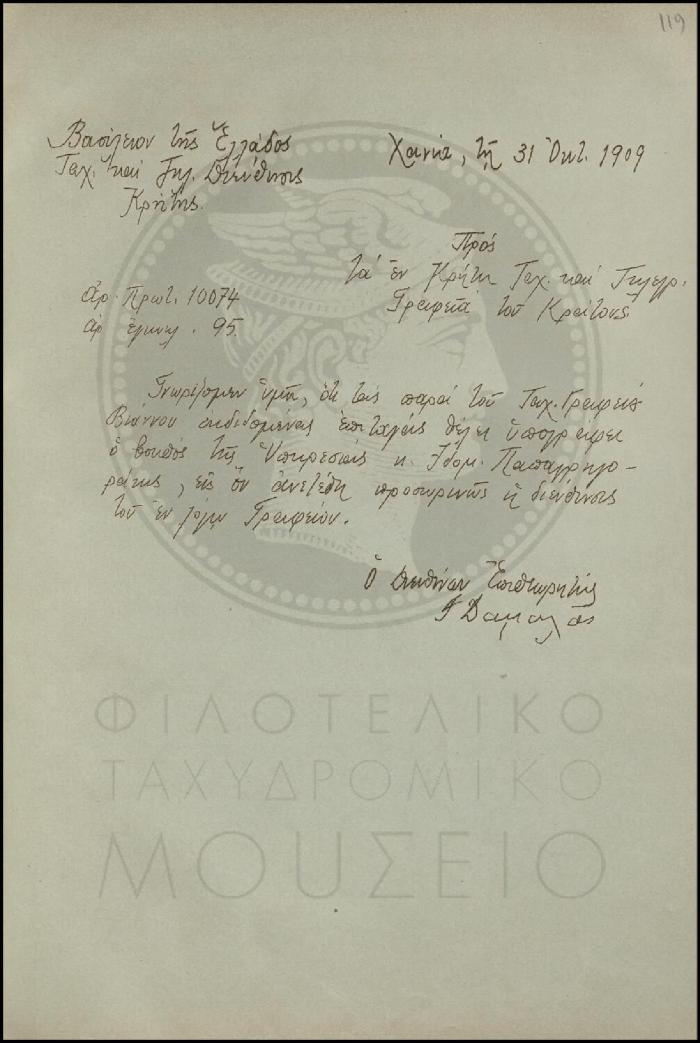 119
Βασίλειον τῆς Ἑλλάδος
Ταχ. καὶ Τηλ. Διεύθυνσις
Κρήτης.
Χανιά, τῇ 31 Ὀκτ. 1909
Πρός
τὰ ἐν Κρήτῃ Ταχ. καὶ Τηλεγρ.
Γραφεῖα τοῦ Κράτους
ἀρ. Πρωτ. 10074
ἀρ ἐγκυκλ. 95.
Γνωρίζομεν ὑμῖν, ὅτι τὰς παρὰ τοῦ Ταχ. Γραφείου
Βιάννου ἐκδιδομένας ἐπιταγὰς θέλει ὑπογράφει
ὁ βοηθὸς τῆς Ὑπηρεσίας κ. Ἰδομ. Παπαγρηγο-
ράκης, εἰς ὃν ἀνετέθη προσωρινῶς ἡ διεύθυνσις
τοῦ ἐν λόγῳ Γραφείου.
Ὁ Διευθύνων Ἐπιθεωρητής
Γ Δαμαλᾶς
ΦΙΛΟΤΕΛΙΚΟ
ΤΑΧΥΔΡΟΜΙΚΟ
ΜΟΥΣΕΙΟ